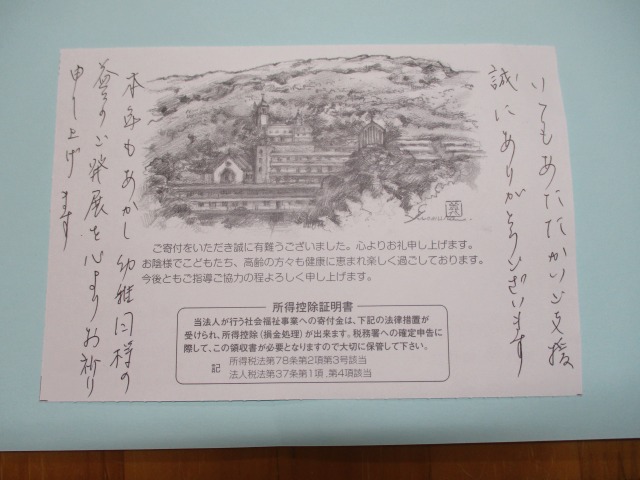 いつもあたたかいご支援
誠にありがとうございます
本年もあかし幼稚園様の
益々のご発展を心よりお祈り
申し上げます
ご寄付をいただき誠に有難うございました。心よりお礼申し上げます。
お陰様でこどもたち、高齢の方々も健康に恵まれ楽しく過ごしております。
今後ともご指導ご協力の程よろしく申し上げます。
所得控除証明書
当法人が行う社会福祉事業への寄付金は、下記の法律措置が
受けられ、所得控除(損金処理)が出来ます。税務署への確定申告に
際して、この領収書が必要となりますので大切に保管して下さい。
記
所得税法第78条第2項第3号該当
法人税法第37条第1項、第4項該当